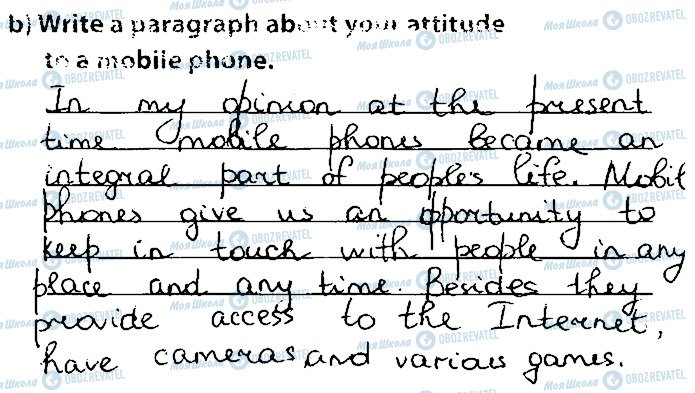 b) Write a paragraph about your attitude
to a mobile phone.
In my opinion at the present
time mobile phones became an
integral part of people's life. Mobil
phones give us an opportunity to
keep in touch with people in any
place and any time. Besides they
provide access to the Internet,
have cameras and various games.